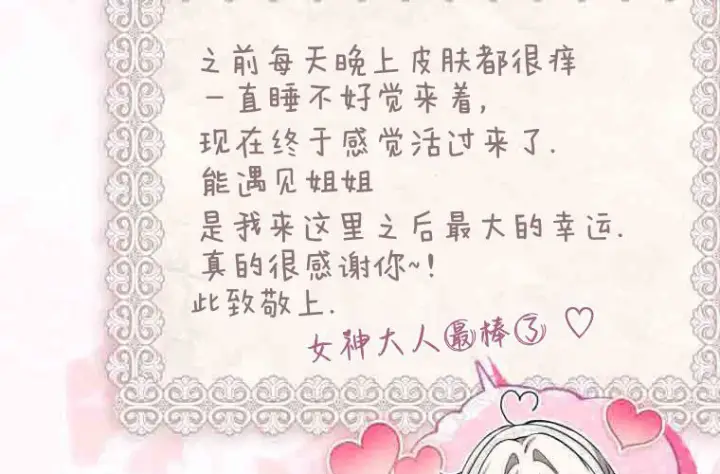 之前每天晚上皮肤都很痒
一直睡不好觉来着,
现在终于感觉活过来了.
能遇见姐姐
是我来这里之后最大的幸运.
真的很感谢你~!
此致敬上.
女神大人最棒了♡